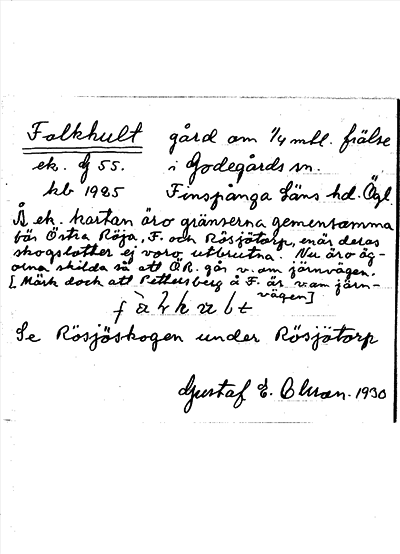 Falkhult gård om 1/4 mtl. frälse
ek. g 55. i Godegårds sn.
kb 1925 Finspånga läns hd. Ögl.
Å ek. kartan äro gränserna gemensamma
för Östra Röja, F. och Rösjötorp, enär deras
skogslotter ej voro utbrutna. Nu äro äg-
orna skilda så att ÖR. går v. om järnvägen.
[Märk dock att Pettersberg å F. är v. om järn-
vägen]
Se Rösjöskogen under Rösjötorp
Gustaf E. Olsson. 1930